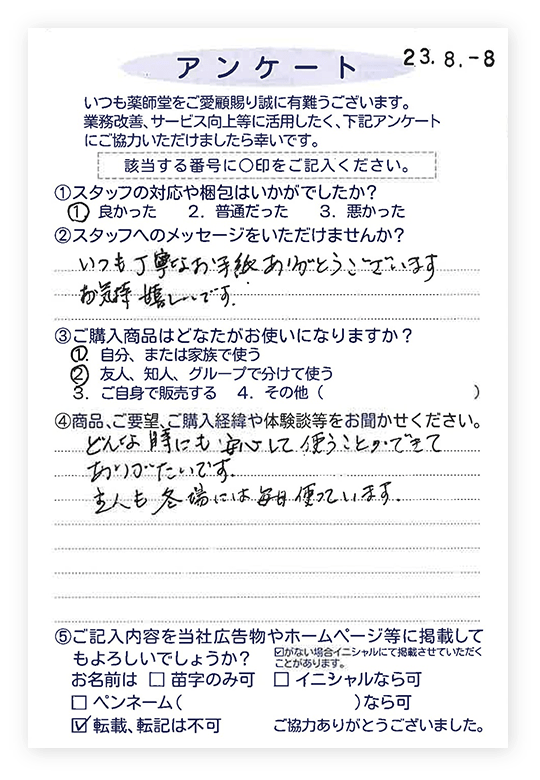 23.8.-8
アンケート
いつも薬師堂をご愛顧賜り誠に有難うございます。
業務改善、サービス向上等に活用したく、下記アンケート
にご協力いただけましたら幸いです。
該当する番号に〇印をご記入ください。
①スタッフの対応や梱包はいかがでしたか?
① 良かった 2. 普通だった 3. 悪かった
②スタッフへのメッセージをいただけませんか?
いつも丁寧なお手紙ありがとうございます
お気持嬉しいです.
③ご購入商品はどなたがお使いになりますか?
①. 自分、または家族で使う
② 友人、知人、グループで分けて使う
3. ご自身で販売する 4. その他( )
④商品、ご要望、ご購入経緯や体験談等をお聞かせください。
どんな時にも安心して使うことができて
ありがたいです.
主人も冬場には毎日使っています.
⑤ご記入内容を当社広告物やホームページ等に掲載して
もよろしいでしょうか? ☑がない場合イニシャルにて掲載させていただく
ことがあります。
お名前は □ 苗字のみ可 □ イニシャルなら可
□ ペンネーム( )なら可
☑ 転載、転記は不可 ご協力ありがとうございました。